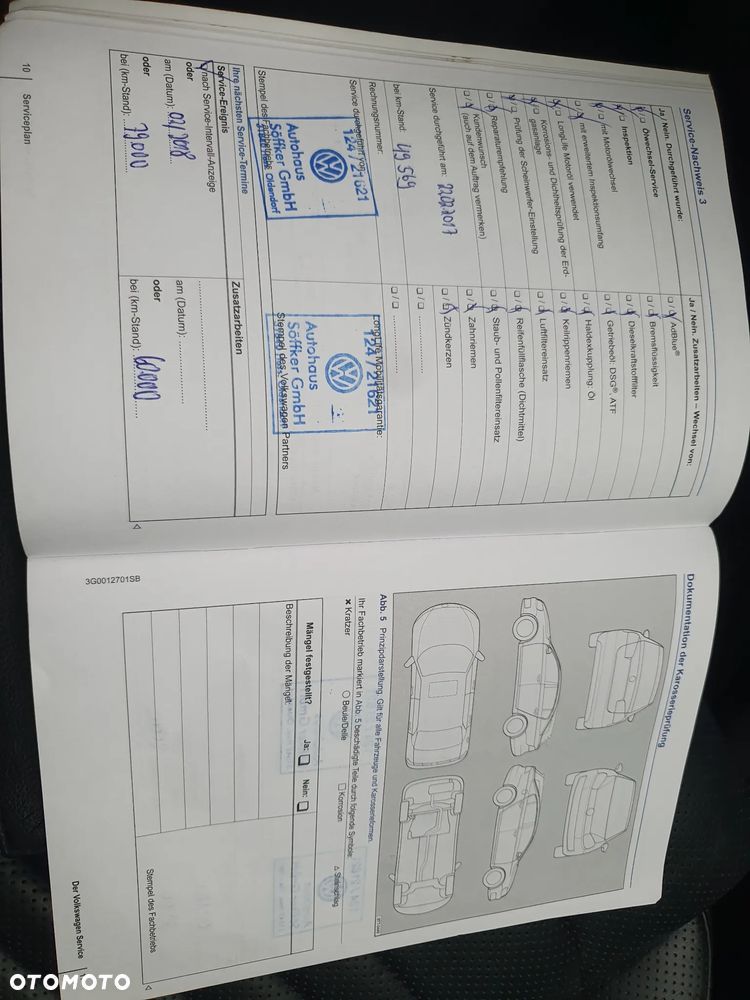 Service-Nachweis 3
Ja / Nein. Durchgeführt wurde:
Ölwechsel-Service
Inspektion
mit Motorölwechsel
mit erweitertem Inspektionsumfang
LongLife Motoröl verwendet
Korrosions- und Dichtheitsprüfung der Erd-
gasanlage
Prüfung der Scheinwerfer-Einstellung
Reparaturempfehlung
Kundenwunsch
(auch auf dem Auftrag vermerken)
Service durchgeführt am: 22.02.2017
bei km-Stand: 49 569
Rechnungsnummer:
Service durchgeführt von:
124 / 21621
Autohaus
Söffker GmbH
Oldendorf
Stempel des Fachbetriebs
Ja / Nein. Zusatzarbeiten – Wechsel von:
AdBlue®
Bremsflüssigkeit
Dieselkraftstofffilter
Getriebeöl: DSG®, ATF
Haldexkupplung: Öl
Keilrippenriemen
Luftfiltereinsatz
Reifenfüllflasche (Dichtmittel)
Staub- und Pollenfiltereinsatz
Zahnriemen
Zündkerzen
LongLife Mobilitätsgarantie:
124 / 21621
Autohaus
Söffker GmbH
Stempel des Volkswagen Partners
Ihre nächsten Service-Termine
Service-Ereignis
nach Service-Intervall-Anzeige
oder
am (Datum): 02/2018
oder
bei (km-Stand): 79.000
Zusatzarbeiten
am (Datum):
oder
bei (km-Stand): 60.000
10 Serviceplan
Dokumentation der Karosserieprüfung
Abb. 5 Prinzipdarstellung: Gilt für alle Fahrzeuge und Karosserieformen.
Ihr Fachbetrieb markiert in Abb. 5 beschädigte Teile durch folgende Symbole:
Kratzer
Beule/Delle
Korrosion
Steinschlag
Mängel festgestellt? Ja: Nein:
Beschreibung der Mängel:
Stempel des Fachbetriebs
3G0012701SB
Der Volkswagen Service
OTOMOTO